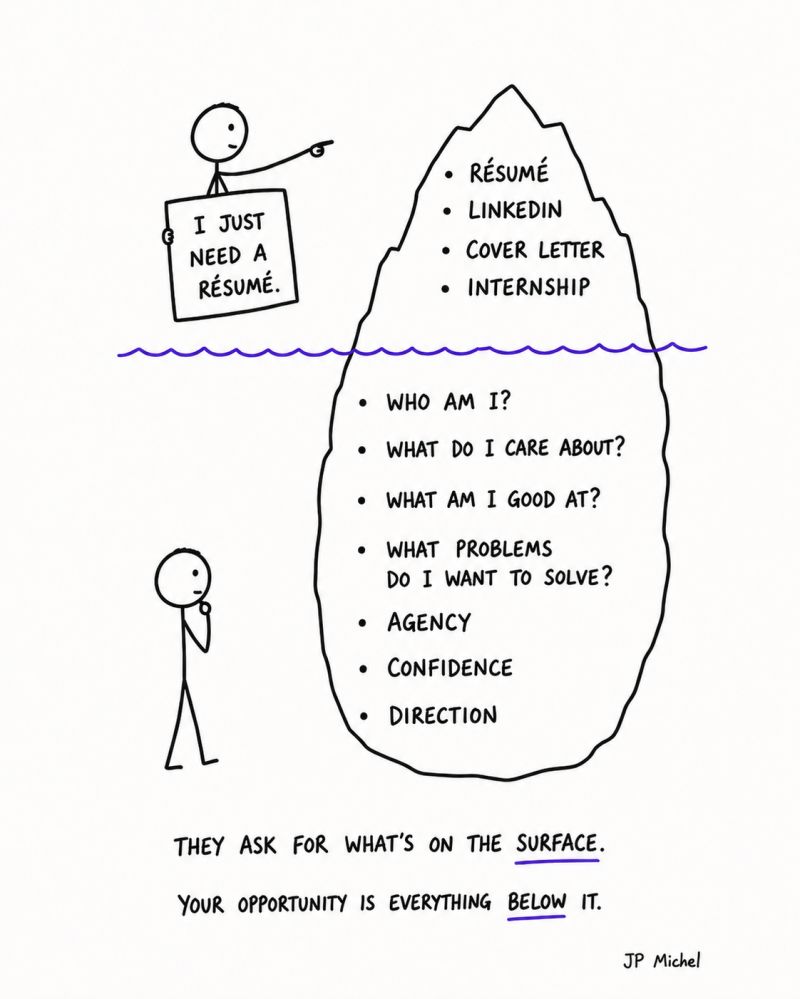 I JUST
NEED A
RÉSUMÉ.
• RÉSUMÉ
• LINKEDIN
• COVER LETTER
• INTERNSHIP
• WHO AM I?
• WHAT DO I CARE ABOUT?
• WHAT AM I GOOD AT?
• WHAT PROBLEMS
DO I WANT TO SOLVE?
• AGENCY
• CONFIDENCE
• DIRECTION
THEY ASK FOR WHAT'S ON THE SURFACE.
YOUR OPPORTUNITY IS EVERYTHING BELOW IT.
JP Michel